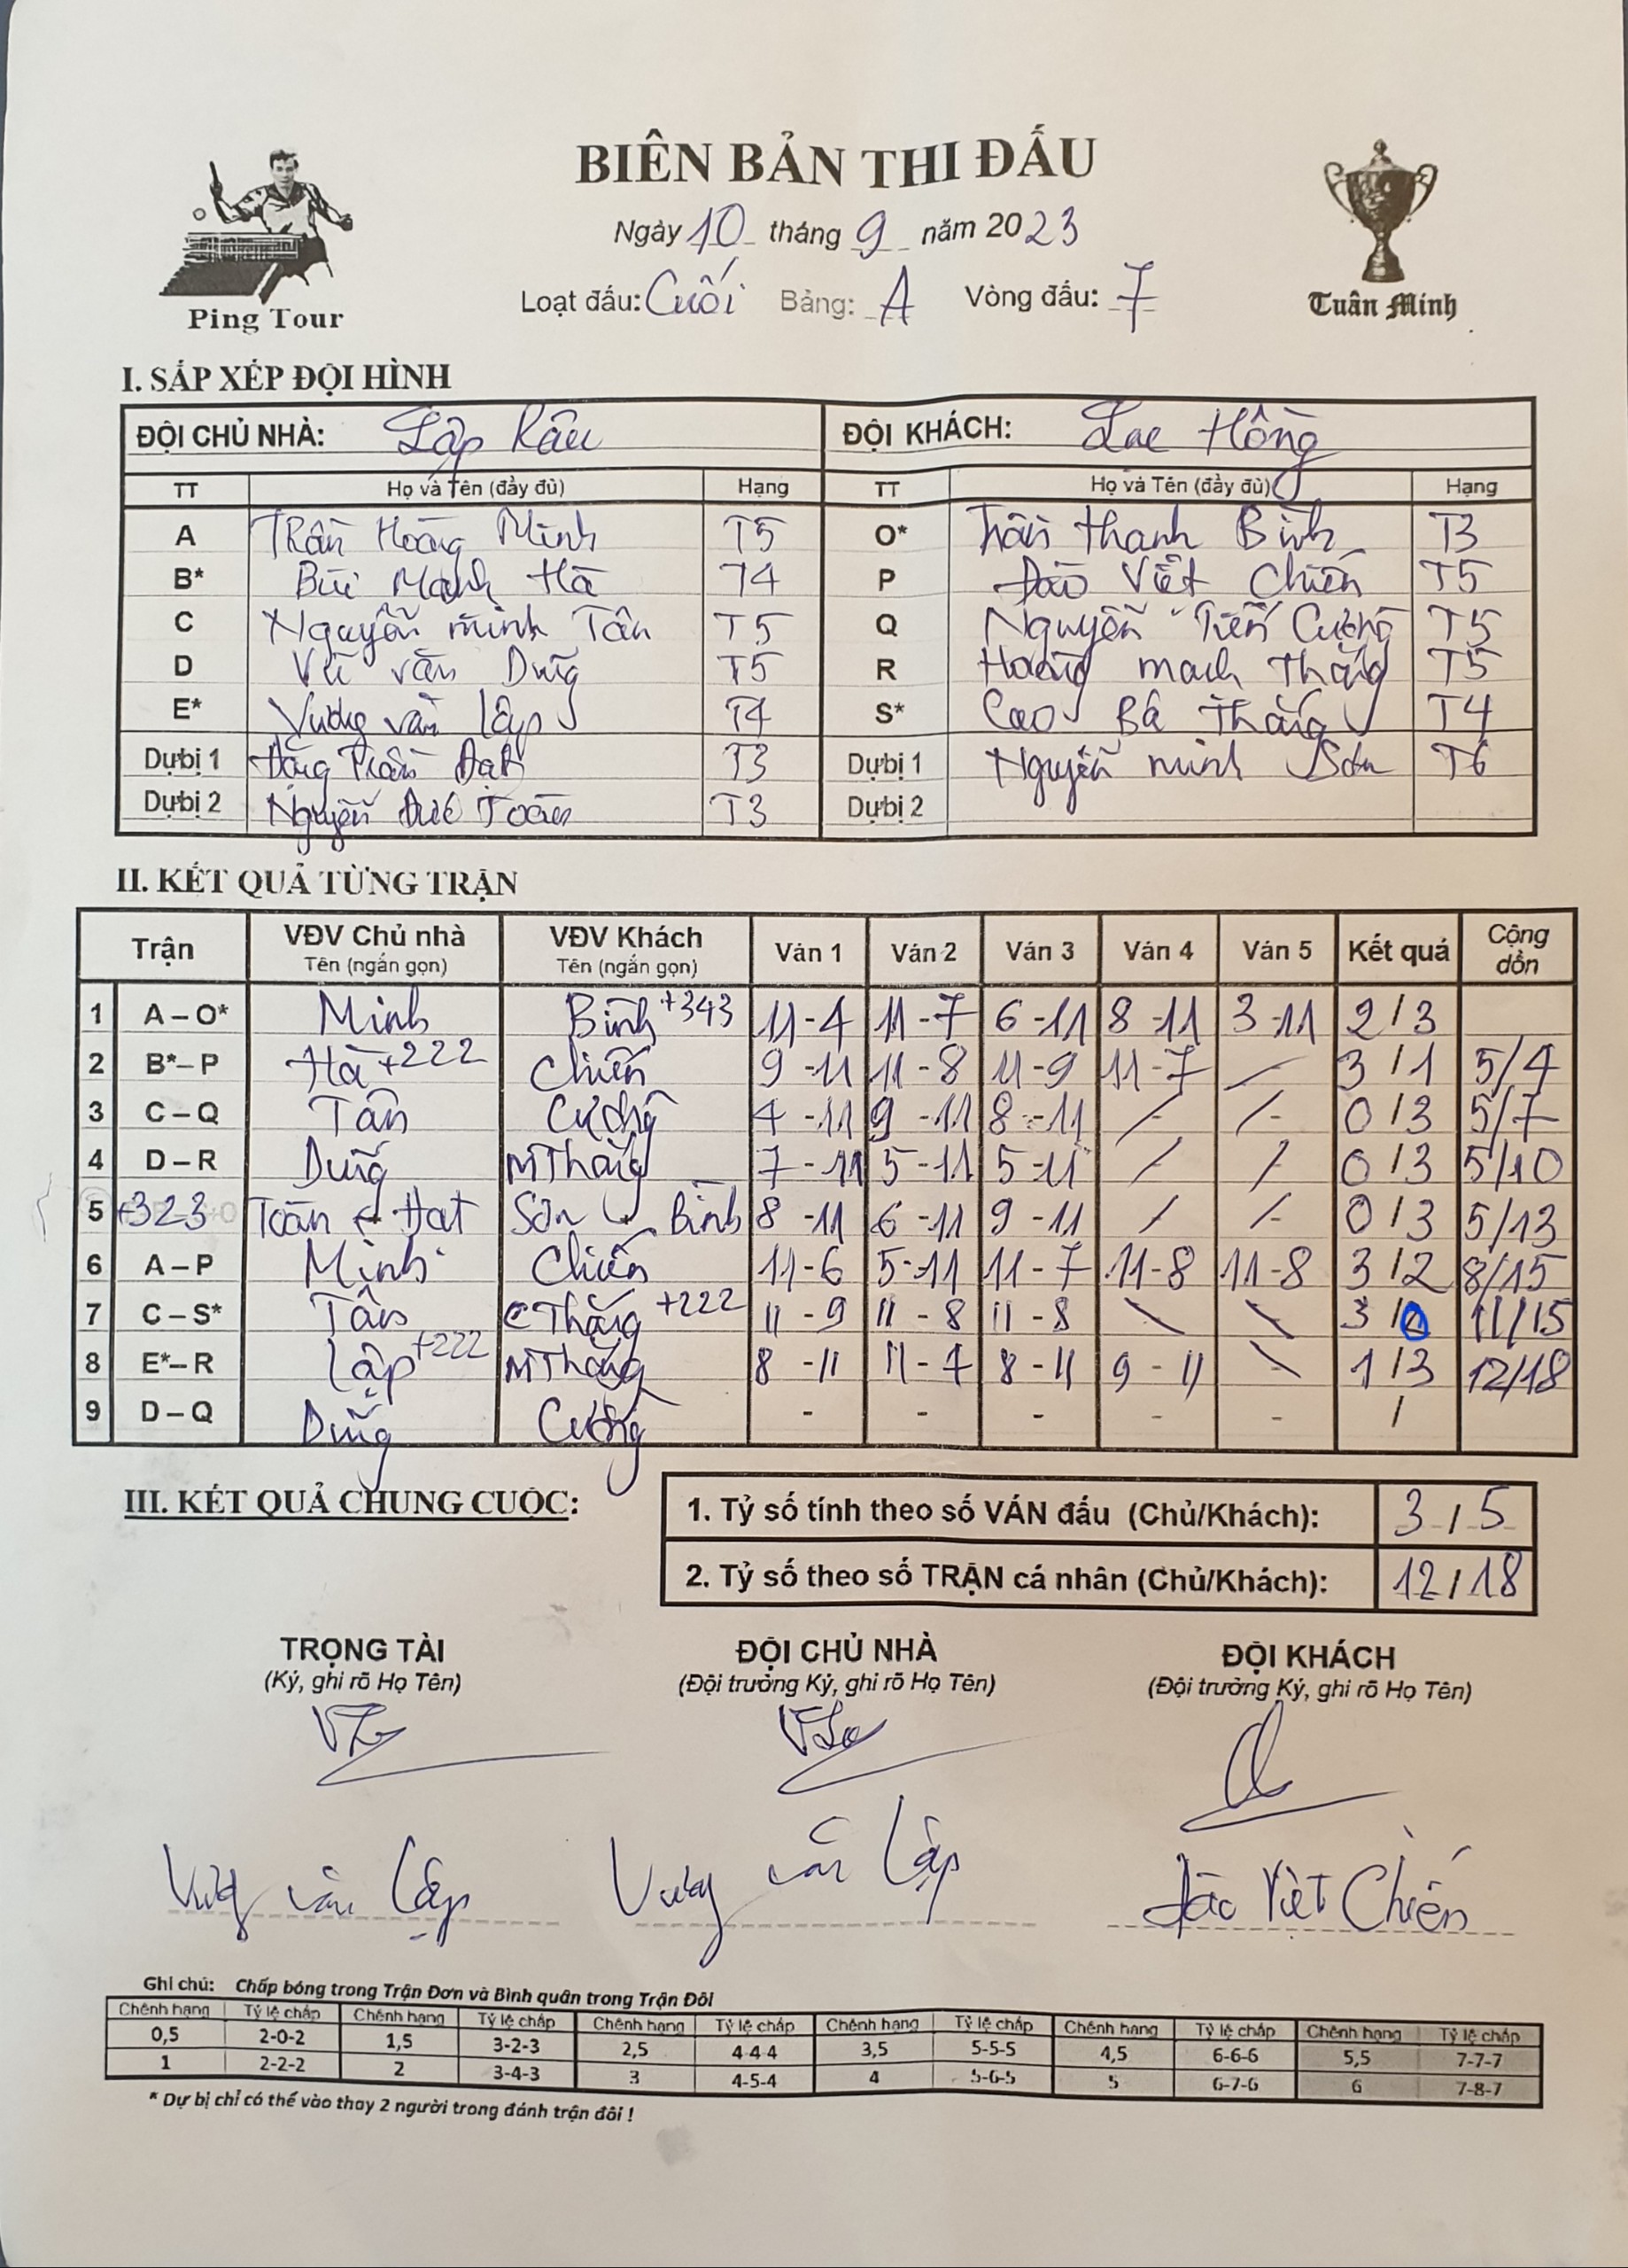 BIÊN BẢN THI ĐẤU
Ngày 10 tháng 9 năm 2023
Loạt đấu: Cuối Bảng: A Vòng đấu: 7
Ping Tour
Tuân Minh
I. SẮP XẾP ĐỘI HÌNH
ĐỘI CHỦ NHÀ: Lập Râu ĐỘI KHÁCH: Lạc Hồng
TT Họ và Tên (đầy đủ) Hạng TT Họ và Tên (đầy đủ) Hạng
A Trần Hoàng Minh T5 O* Trần Thanh Bình T3
B* Bùi Mạnh Hà T4 P Đào Việt Chiến T5
C Nguyễn minh Tân T5 Q Nguyễn Tiến Cường T5
D Vũ văn Dũng T5 R Hoàng mạnh Thắng T5
E* Vương văn Lập T4 S* Cao Bá Thắng T4
Dự bị 1 Đặng Trần Đạt T3 Dự bị 1 Nguyễn minh Sơn T6
Dự bị 2 Nguyễn Đức Toàn T3 Dự bị 2
II. KẾT QUẢ TỪNG TRẬN
Trận VĐV Chủ nhà Tên (ngắn gọn) VĐV Khách Tên (ngắn gọn) Ván 1 Ván 2 Ván 3 Ván 4 Ván 5 Kết quả Cộng dồn
1 A – O* Minh Bình +343 11 - 4 11 - 7 6 - 11 8 - 11 3 - 11 2 / 3
2 B* – P Hà +222 Chiến 9 - 11 11 - 8 11 - 9 11 - 7 / 3 / 1 5/4
3 C – Q Tân Cường 4 - 11 9 - 11 8 - 11 / / 0 / 3 5/7
4 D – R Dũng MThắng 7 - 11 5 - 11 5 - 11 / / 0 / 3 5/10
5 +323 Toàn + Đạt Sơn + Bình 8 - 11 6 - 11 9 - 11 / / 0 / 3 5/13
6 A – P Minh Chiến 11 - 6 5 - 11 11 - 7 11 - 8 11 - 8 3 / 2 8/15
7 C – S* Tân CThắng +222 11 - 9 11 - 8 11 - 8 \ \ 3 / 0 11/15
8 E* – R Lập +222 MThắng 8 - 11 11 - 7 8 - 11 9 - 11 \ 1 / 3 12/18
9 D – Q Dũng Cường - - - - - /
III. KẾT QUẢ CHUNG CUỘC:
1. Tỷ số tính theo số VÁN đấu (Chủ/Khách): 3 / 5
2. Tỷ số theo số TRẬN cá nhân (Chủ/Khách): 12 / 18
TRỌNG TÀI ĐỘI CHỦ NHÀ ĐỘI KHÁCH
(Ký, ghi rõ Họ Tên) (Đội trưởng Ký, ghi rõ Họ Tên) (Đội trưởng Ký, ghi rõ Họ Tên)
Vương văn Lập Vương văn Lập Đào Việt Chiến
Ghi chú: Chấp bóng trong Trận Đơn và Bình quân trong Trận Đôi
Chênh hạng Tỷ lệ chấp Chênh hạng Tỷ lệ chấp Chênh hạng Tỷ lệ chấp Chênh hạng Tỷ lệ chấp Chênh hạng Tỷ lệ chấp Chênh hạng Tỷ lệ chấp
0,5 2-0-2 1,5 3-2-3 2,5 4-4-4 3,5 5-5-5 4,5 6-6-6 5,5 7-7-7
1 2-2-2 2 3-4-3 3 4-5-4 4 5-6-5 5 6-7-6 6 7-8-7
* Dự bị chỉ có thể vào thay 2 người trong đánh trận đôi !